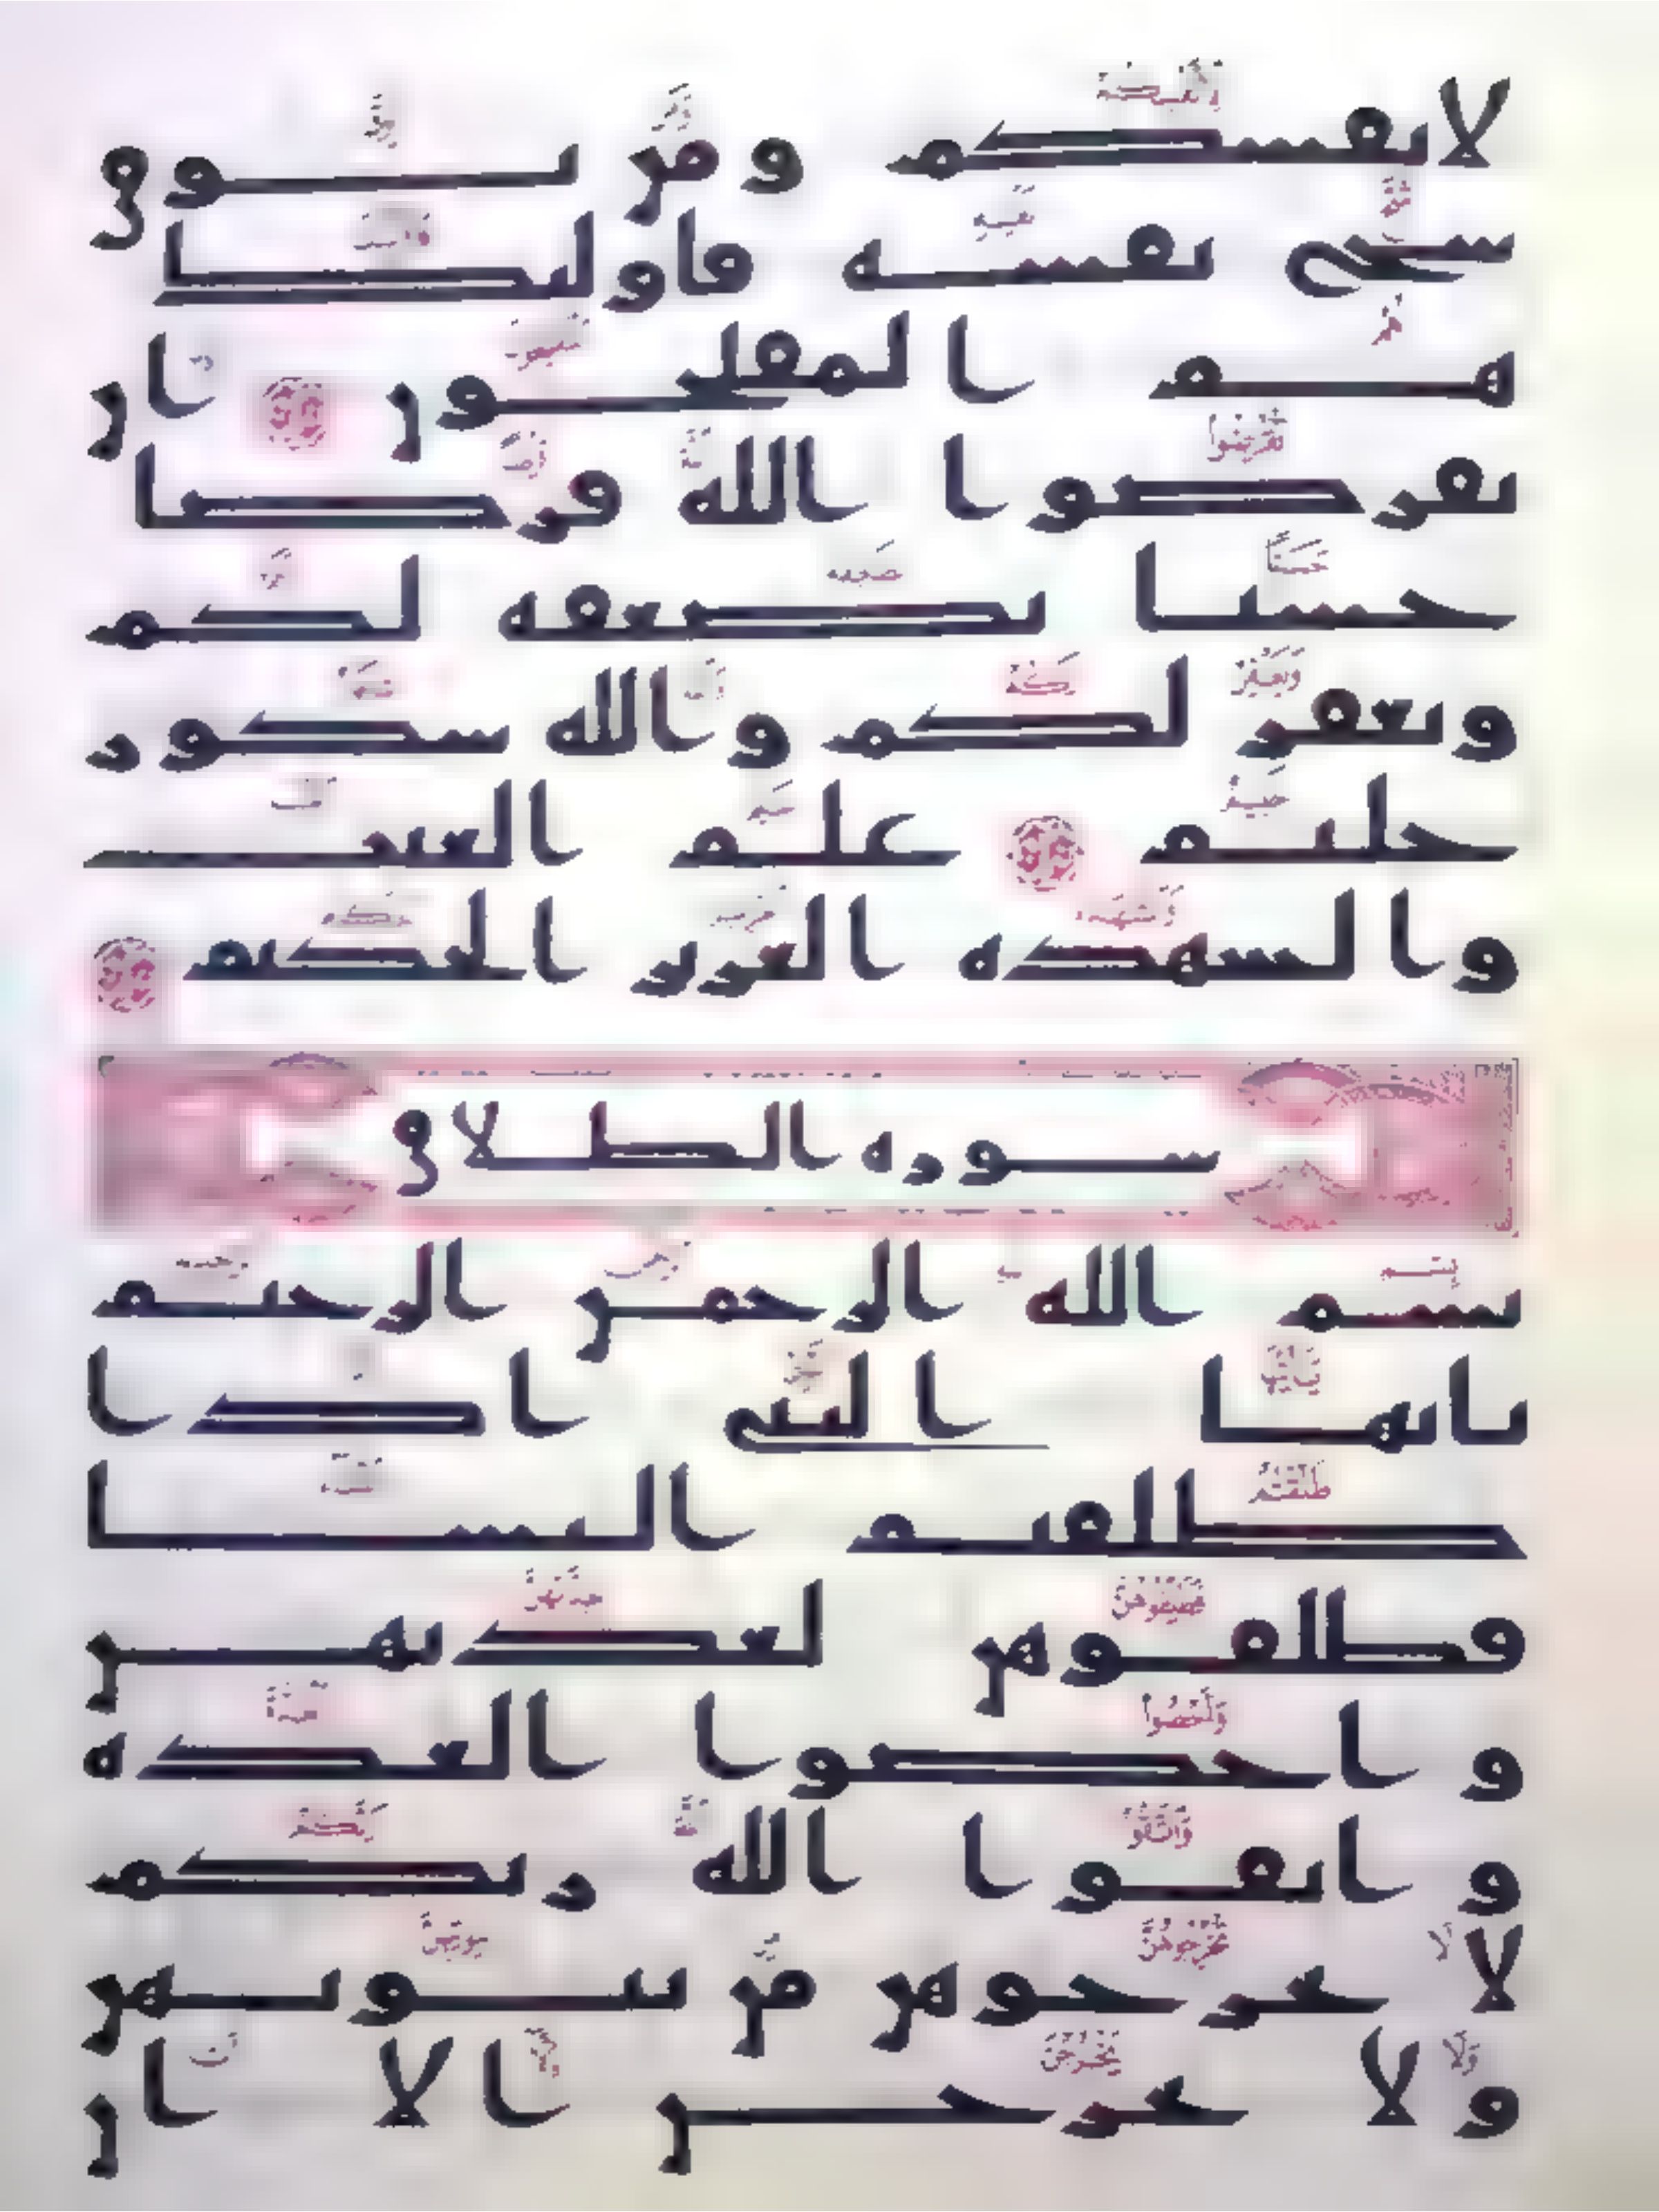 لانفسكم ومن يوق
شح نفسه فاولئك
هم المفلحون ان
تقرضوا الله قرضا
حسنا يضعفه لكم
ويغفر لكم والله شكور
حليم علم الغيب
والشهدة العزيز الحكيم
سورة الطلاق
بسم الله الرحمن الرحيم
يايها النبي اذا
طلقتم النسا
فطلقوهن لعدتهن
واحصوا العدة
واتقوا الله ربكم
لا تخرجوهن من بيوتهن
ولا يخرجن الا ان